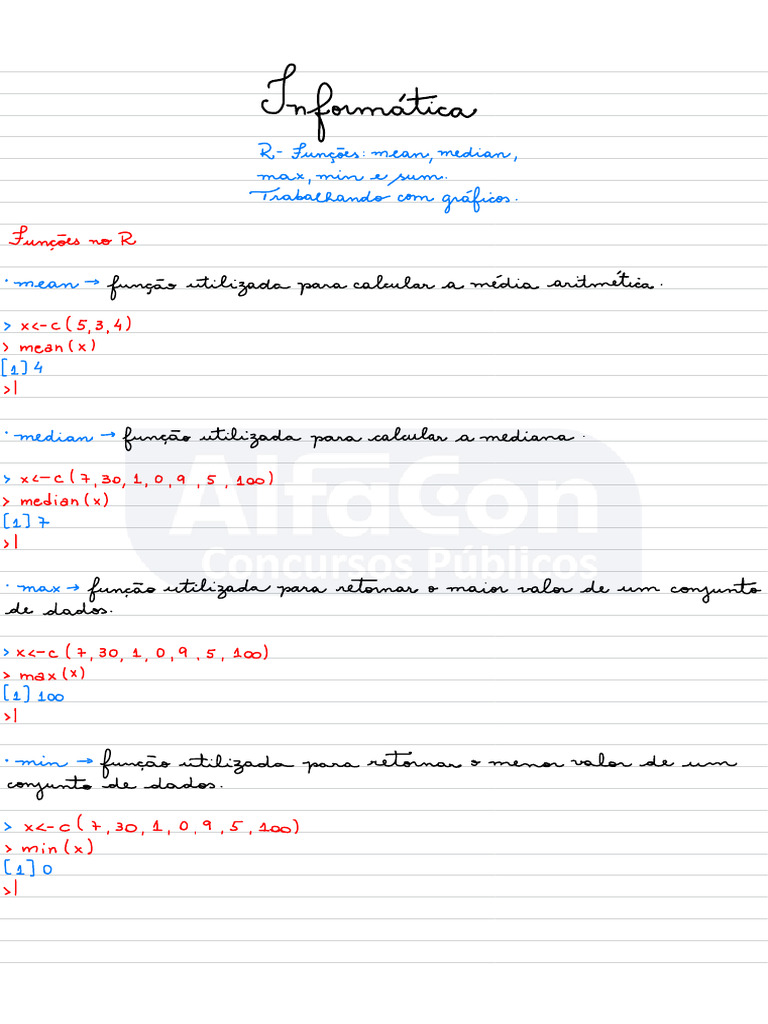 Informática
R- Funções: mean, median,
max, min e sum.
Trabalhando com gráficos.
Funções no R
· mean → função utilizada para calcular a média aritmética.
> x<-c(5,3,4)
> mean(x)
[1] 4
>|
· median → função utilizada para calcular a mediana.
> x<-c(7,30,1,0,9,5,100)
> median(x)
[1] 7
>|
AlfaCon
Concursos Públicos
· max → função utilizada para retornar o maior valor de um conjunto
de dados.
> x<-c(7,30,1,0,9,5,100)
> max(x)
[1] 100
>|
· min → função utilizada para retornar o menor valor de um
conjunto de dados.
> x<-c(7,30,1,0,9,5,100)
> min(x)
[1] 0
>|